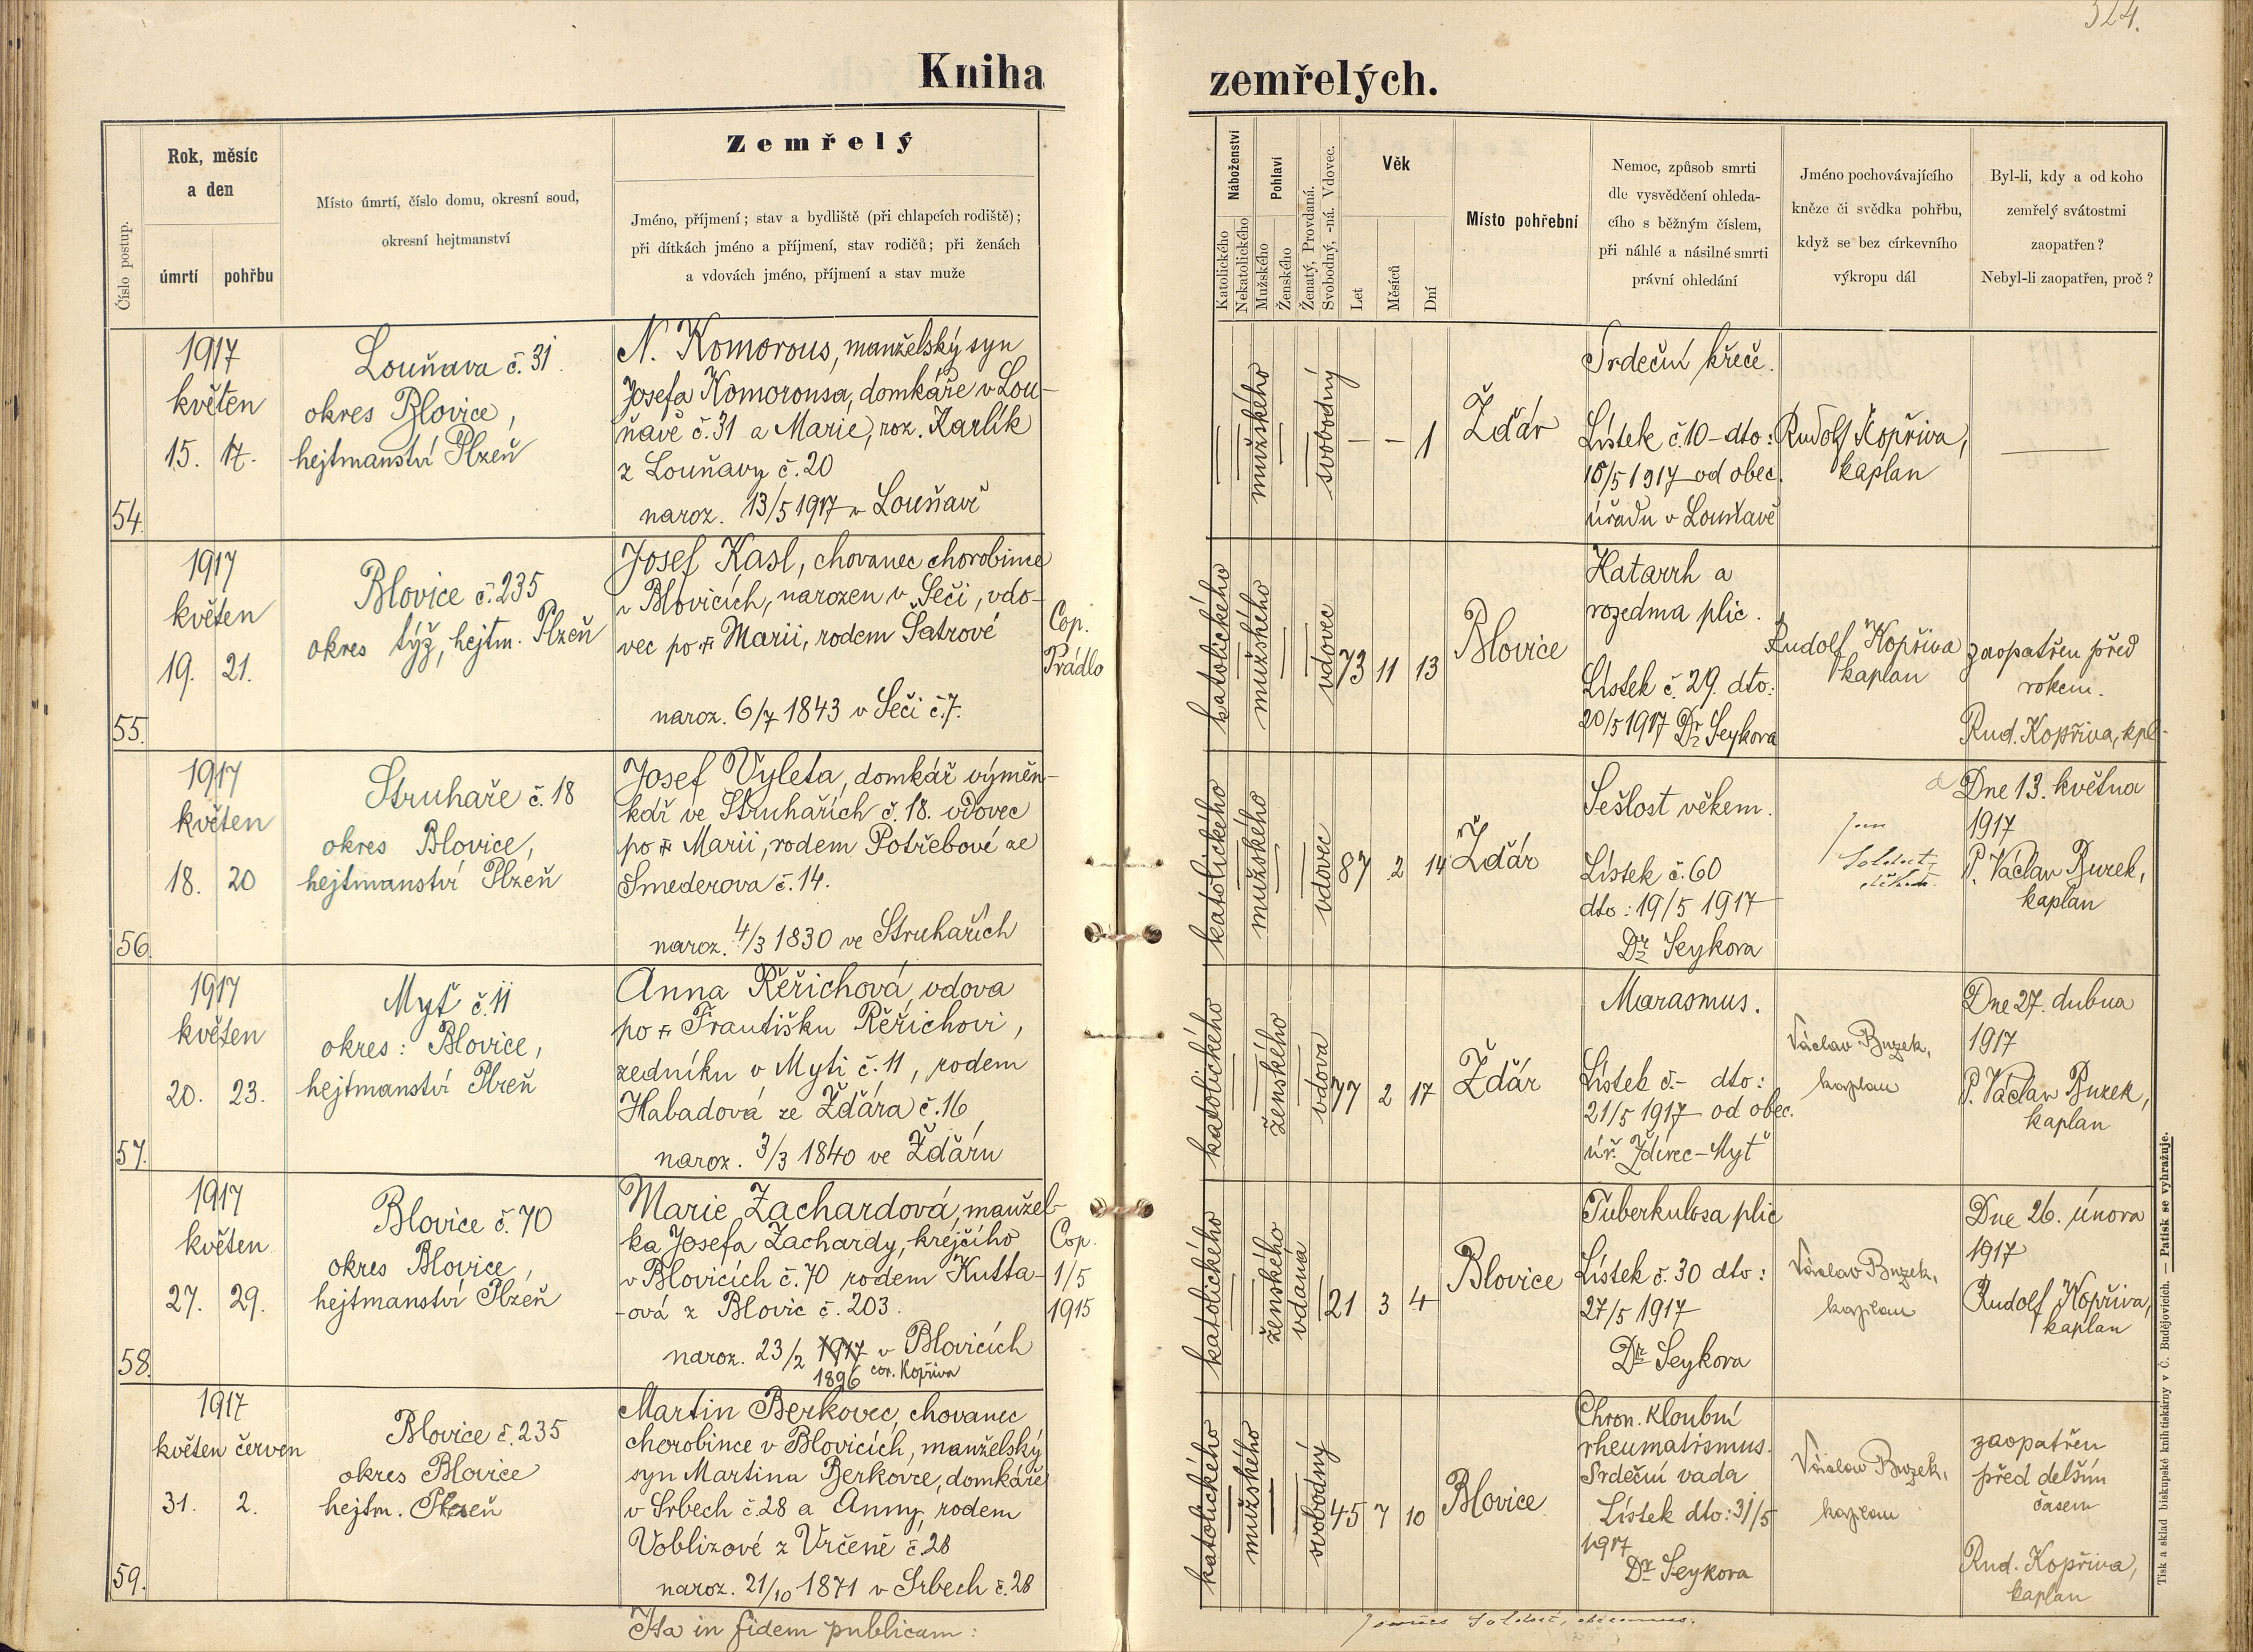 324.
Kniha zemřelých.
Číslo postup.
Rok, měsíc
a den
úmrtí
pohřbu
Místo úmrtí, číslo domu, okresní soud,
okresní hejtmanství
Zemřelý
Jméno, příjmení; stav a bydliště (při chlapcích rodiště);
při dítkách jméno a příjmení, stav rodičů; při ženách
a vdovách jméno, příjmení a stav muže
Náboženství
Katolického
Nekatolického
Pohlaví
Mužského
Ženského
Ženatý, Provdaná.
Svobodný, -ná. Vdovec.
Věk
Let
Měsíců
Dní
Místo pohřební
Nemoc, způsob smrti
dle vysvědčení ohleda-
cího s běžným číslem,
při náhlé a násilné smrti
právní ohledání
Jméno pochovávajícího
kněze či svědka pohřbu,
když se bez církevního
výkropu dál
Byl-li, kdy a od koho
zemřelý svátostmi
zaopatřen?
Nebyl-li zaopatřen, proč?
54.
1917
květen
15. 17.
Louňava č. 31
okres Blovice,
hejtmanství Plzeň
N. Komorous, manželský syn
Josefa Komorousa, domkáře v Lou-
ňavě č. 31 a Marie, roz. Karlík
z Louňavy č. 20
naroz. 13/5 1917 v Louňavě
mužského
svobodný
— – 1
Žďár
Srdeční křeče.
Lístek č. 10 – dto:
15/5 1917 od obec.
úřadu v Louňavě
Rudolf Kopřiva,
kaplan
—
55.
1917
květen
19. 21.
Blovice č. 235
okres týž, hejtm. Plzeň
Josef Kasl, chovanec chorobince
v Blovicích, narozen v Seči, vdo-
vec po Marii, rodem Šatrové
naroz. 6/7 1843 v Seči č. 7.
Cop.
Prádlo
katolického
mužského
vdovec
73 11 13
Blovice
Katarrh a
rozedma plic.
Lístek č. 29. dto:
20/5 1917 Dr. Seykora
Rudolf Kopřiva
kaplan
zaopatřen před
rokem.
Rud. Kopřiva, kpl.
56.
1917
květen
18. 20
Struhaře č. 18
okres Blovice,
hejtmanství Plzeň
Josef Vyleta, domkář výměn-
kář ve Struhařích č. 18. vdovec
po Marii, rodem Potřebové ze
Smederova č. 14.
naroz. 4/3 1830 ve Struhařích
katolického
mužského
vdovec
87 2 14
Žďár
Sešlost věkem.
Lístek č. 60
dto: 19/5 1917
Dr. Seykora
Dne 13. května
1917
P. Václav Buzek,
kaplan
57.
1917
květen
20. 23.
Myť č. 11
okres: Blovice,
hejtmanství Plzeň
Anna Řeřichová, vdova
po Františku Řeřichovi,
zedníku v Myti č. 11, rodem
Habadová ze Žďára č. 16
naroz. 3/3 1840 ve Žďáru
katolického
ženského
vdova
77 2 17
Žďár
Marasmus.
Lístek č.– dto:
21/5 1917 od obec.
úř. Ždírec-Myť
Václav Buzek,
kaplan
Dne 27. dubna
1917
P. Václav Buzek,
kaplan
58.
1917
květen
27. 29.
Blovice č. 70
okres Blovice,
hejtmanství Plzeň
Marie Zachardová, manžel-
ka Josefa Zachardy, krejčího
v Blovicích č. 70 rodem Kutta-
-ová z Blovic č. 203.
naroz. 23/2 1917 v Blovicích
1896 cor. Kopřiva
Cop.
1/5
1915
katolického
ženského
vdaná
21 3 4
Blovice
Tuberkulosa plic
Lístek č. 30 dto:
27/5 1917
Dr. Seykora
Václav Buzek,
kaplan
Dne 26. února
1917
Rudolf Kopřiva,
kaplan
59.
1917
květen červen
31. 2.
Blovice č. 235
okres Blovice
hejtm. Plzeň
Martin Berkovec, chovanec
chorobince v Blovicích, manželský
syn Martina Berkovce, domkáře
v Srbech č. 28 a Anny, rodem
Voblizové z Vrčeně č. 28
naroz. 21/10 1871 v Srbech č. 28
katolického
mužského
svobodný
45 7 10
Blovice
Chron. kloubní
rheumatismus.
Srdeční vada
Lístek dto: 31/5
1917
Dr. Seykora
Václav Buzek,
kaplan
zaopatřen
před delším
časem
Rud. Kopřiva,
kaplan
Ita in fidem publicam:
Tisk a sklad biskupské knihtiskárny v Č. Budějovicích. — Patisk se vyhražuje.